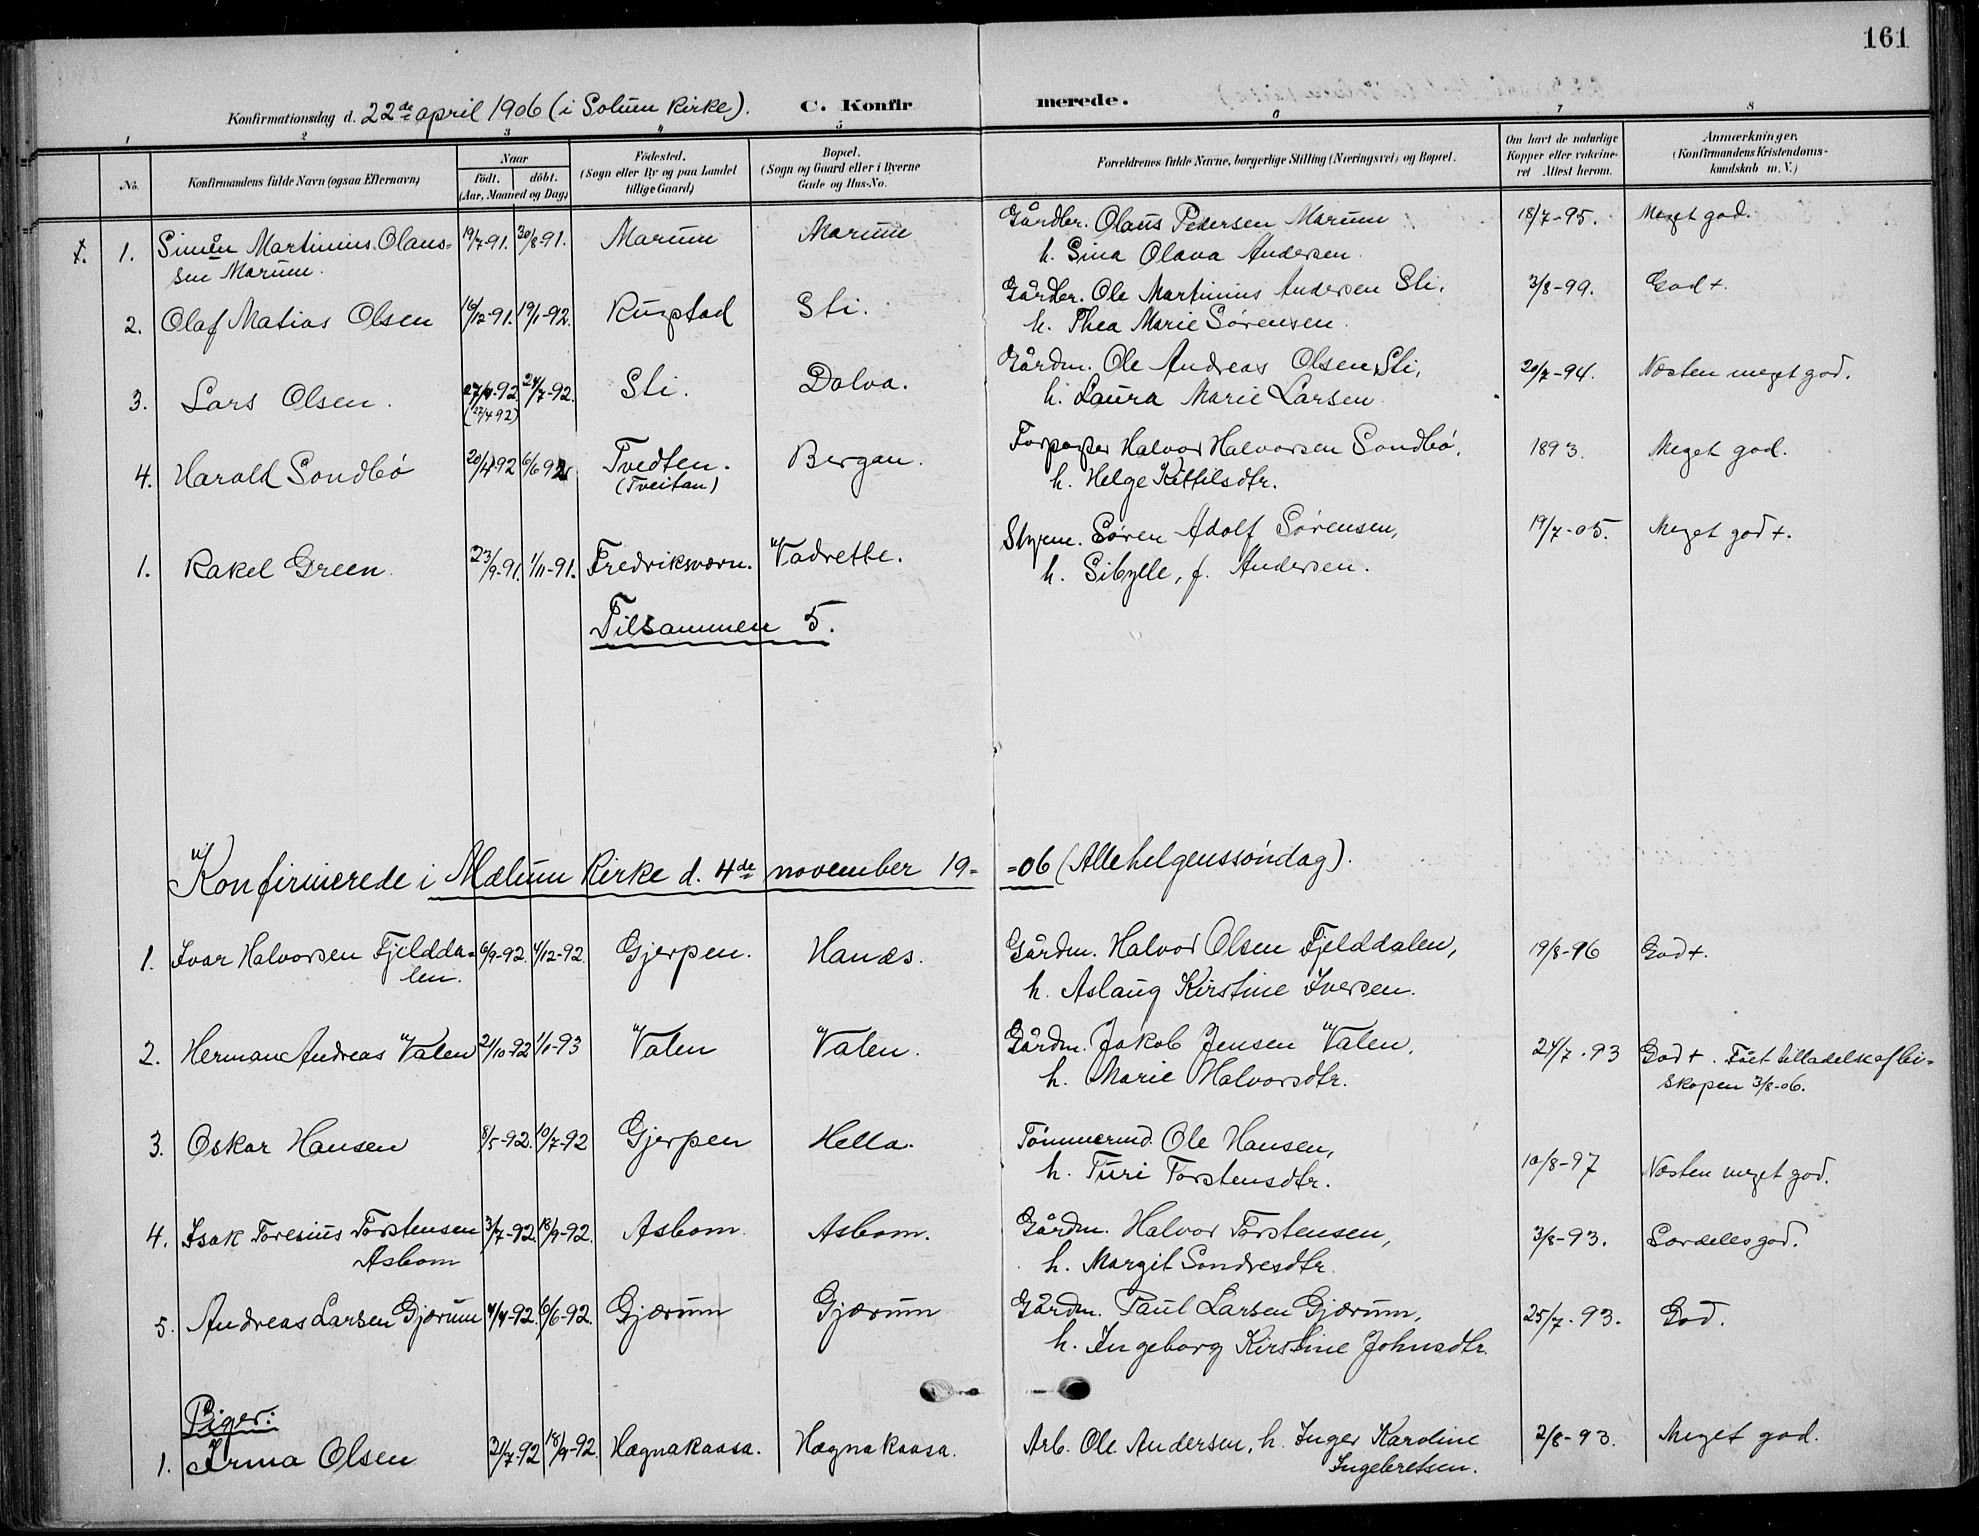 161
Konfirmationsdag d. 22de april 1906 (i Solum kirke). C. Konfirmerede.
1 2 3 4 5 6 7 8
No.
Konfirmandens fulde Navn (ogsaa Efternavn)
Naar
födt. döbt.
(Aar, Maaned og Dag)
Födested.
(Sogn eller By og paa Landet
tillige Gaard)
Bopæl.
(Sogn og Gaard eller i Byerne
Gade og Hus-No.
Forældrenes fulde Navne, borgerlige Stilling (Næringsvei) og Bopæl.
Om havt de naturlige
Kopper eller vakcine-
ret Attest herom.
Anmærkninger.
(Konfirmandens Kristendoms-
kundskab m. V.)
1. Simån Martinius Olaus= 19/7-91. 30/8-91. Marum Marum Gårdbr. Olaus Pedersen Marum 18/7-95. Meget god.
sen Marum. h. Sina Olava Andersen.
2. Olaf Matias Olsen 16/12-91. 19/1-92. Rugstad Sti. Gårdbr. Ole Martinius Andersen Sti. 3/8-99. God+.
h. Thea Marie Sørensen.
3. Lars Olsen. 27/4-92 24/7-92. Sti. Dalva. Gårdm. Ole Andreas Olsen Sti, 20/7-94. Næsten meget god.
(27/4 92) h. Laura Marie Larsen
4. Harald Sondbö 20/4-92 6/6 92 Tvedten. Bergan. Forpagter Halvor Halvorsen Sondbö, 1893. Meget god.
(Tveitan) h. Helge Kittilsdtr.
1. Rakel Green 23/9-91. 1/11-91. Fredriksværn. Vadrette. Styrm. Sören Adolf Sörensen, 19/7-05. Meget god+.
h. Sibylle, f. Andersen.
Tilsammen 5.
Konfirmerede i Mælum Kirke d. 4de november 19= =06 (Allehelgenssöndag).
1. Ivar Halvorsen Fjeldda= 6/9-92. 4/12-92. Gjerpen. Hanæs. Gårdm. Halvor Olsen Fjelddalen, 19/8-96 God+.
len. h. Aslaug Kirstine Iversen.
2. Herman Andreas Valen 21/10-92 1/1-93 Valen Valen. Gårdm. Jakob Jensen Valen, 24/7-93 God+. Fået tilladelse af bi=
h. Marie Halvorsdtr. skopen 3/8-06.
3. Oskar Hansen 8/5-92. 10/7-92 Gjerpen Hella. Tömmermd. Ole Hansen, 10/8-97 Næsten meget god.
h. Turi Torstensdtr.
4. Isak Toresius Torstensen 3/7-92. 18/9-92. Asbom. Asbom. Gårdm. Halvor Torstensen, 3/8-93. Særdeles god.
Asbom h. Margit Sondresdtr.
5. Andreas Larsen Gjærum 4/4-92. 6/6-92. Gjærum Gjærum Gårdm. Paul Larsen Gjærum, 25/7-93. God.
h. Ingeborg Kirstine Johnsdtr.
Piger:
1. Irma Olsen 31/7-92 18/9-92. Hægnakaasa. Hægnakaasa. Arb. Ole Andersen, h. Inger Karoline 2/8-93. Meget god.
Ingebretsen.